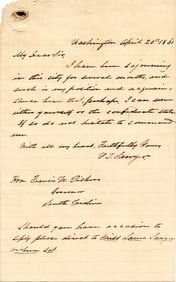 Washington April 20th 1861
My Dear Sir,
I have been sojourning
in this city for several months and
such is my position and acquain-
tance here that perhaps I can serve
either yourself or the confederate states
If so do not hesitate to command
me
With all my heart, Faithfully Yours
Hon Francis W Pickens
Governor
South Carolina
Should you have occasion to
reply please direct to Miss